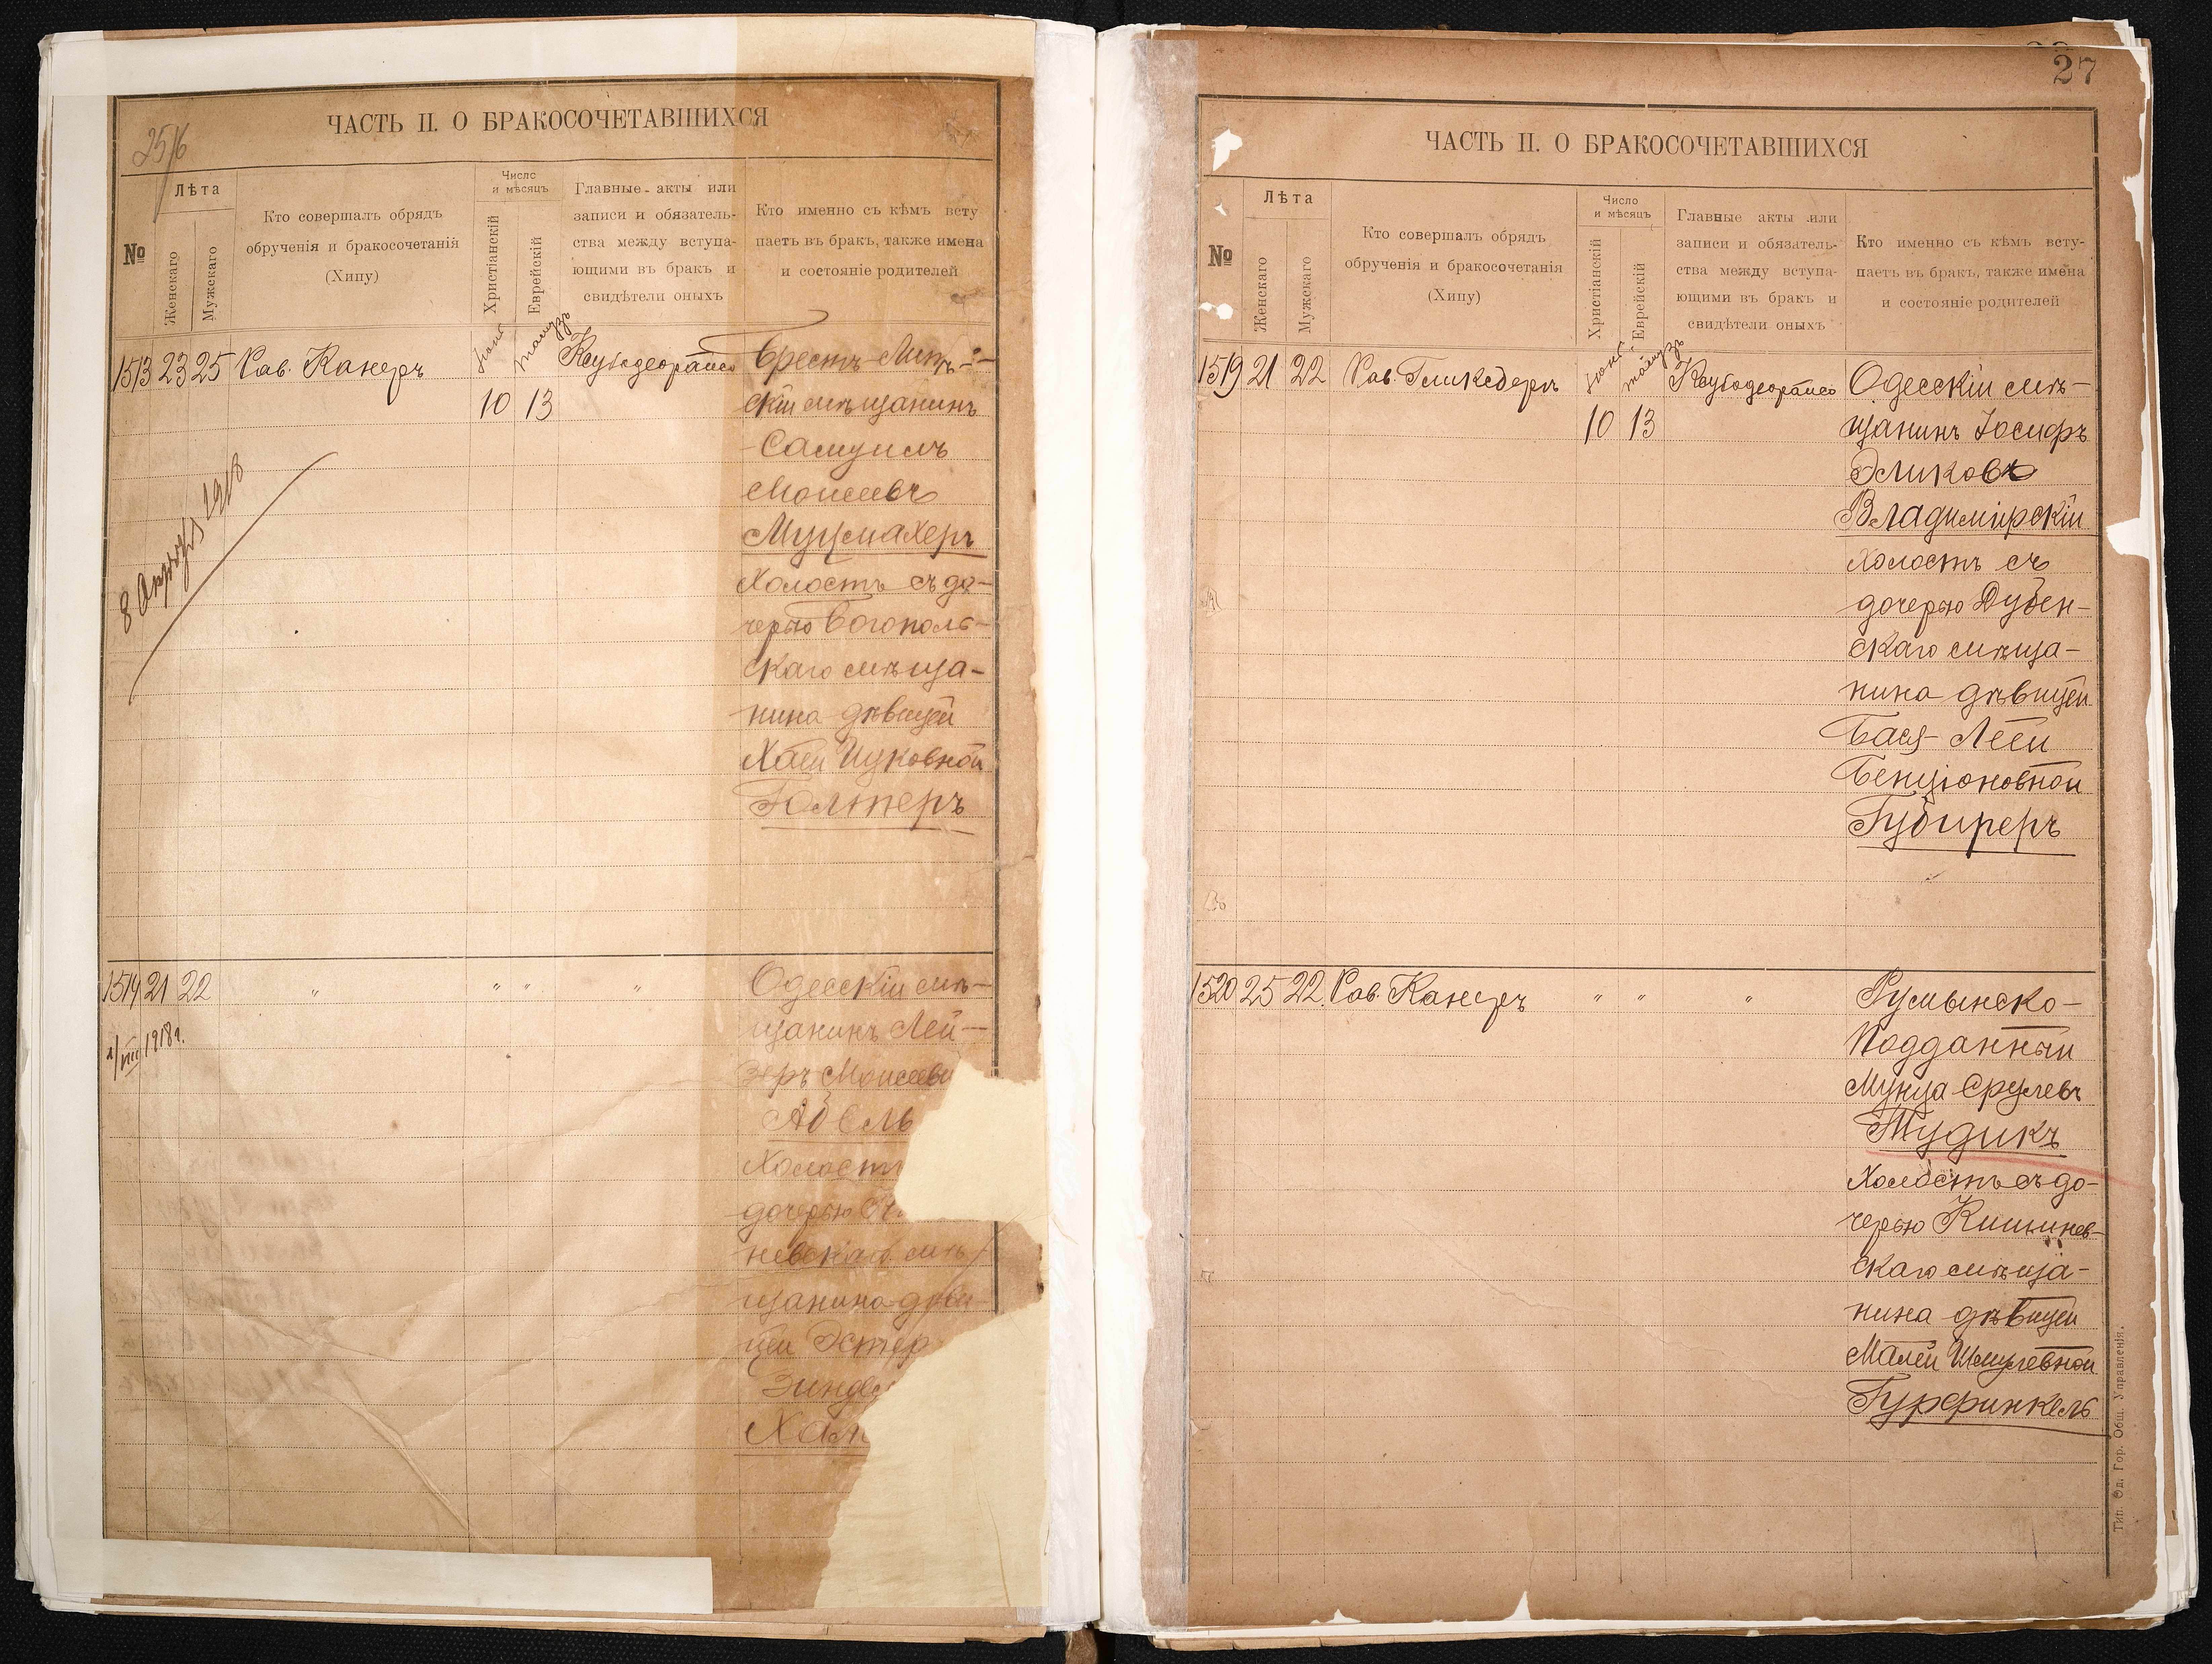 25/6
ЧАСТЬ II. О БРАКОСОЧЕТАВШИХСЯ
№
Лѣта
Женскаго
Мужскаго
Кто совершалъ обрядъ
обрученія и бракосочетанія
(Хипу)
Число
и мѣсяцъ
Христіанскій
Еврейскій
Главные акты или
записи и обязатель-
ства между вступа-
ющими въ бракъ и
свидѣтели оныхъ
Кто именно съ кѣмъ всту
паетъ въ бракъ, также имена
и состояніе родителей
1513 23 25 Рав. Канеръ
10 13
тамузъ
Брестъ-Лит-
скій мѣщанинъ
Самуилъ
Моисеевъ
Муцмахеръ
Холостъ съ до-
черью Богополь-
скаго мѣща-
нина дѣвицей
Хаей Ицковной
Голперъ
1918
1514 21 22 " " " "
1/VIII 1918г.
Одесскій мѣ-
щанинъ Лей-
зеръ Моисеев
Абель
Холостъ
дочерью
невскаго мѣ-
щанина дѣви-
цей Эстер
Хаи
27
ЧАСТЬ II. О БРАКОСОЧЕТАВШИХСЯ
№
Лѣта
Женскаго
Мужскаго
Кто совершалъ обрядъ
обрученія и бракосочетанія
(Хипу)
Число
и мѣсяцъ
Христіанскій
Еврейскій
Главные акты или
записи и обязатель-
ства между вступа-
ющими въ бракъ и
свидѣтели оныхъ
Кто именно съ кѣмъ всту-
паетъ въ бракъ, также имена
и состояніе родителей
1519 21 22 Рав. Гликсберъ
10 13
тамузъ
Одесскій мѣ-
щанинъ Іосифъ
Эликовъ
Владимірскій
Холостъ съ
дочерью Дубен-
скаго мѣща-
нина дѣвицей
Бася Леей
Бенціоновной
Губиреръ
1520 25 22. Рав. Канеръ " " "
Румынско-
Подданный
Мунца Срулевъ
Тудикъ
Холостъ съ до-
черью Кишинев-
скаго мѣща-
нина дѣвицей
Малей Шмулевной
Гурфинкель
Тип. Од. Гор. Общ. Управленія.